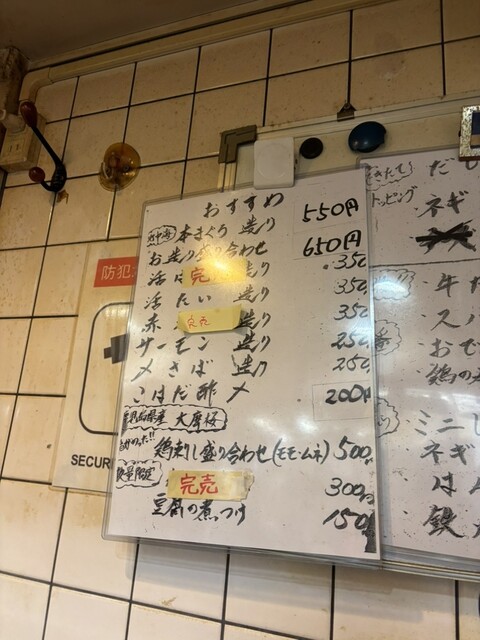 おすすめ
地中海 本まぐろ 造り 550円
お造り盛り合わせ 650円
活は 完売 造り 350
活たい 造り 350
赤 完売 造り 350
サーモン 造り 250
〆さば 造り 250
こはだ酢〆 200円
鹿児島県産 大摩桜
鶏刺し盛り合わせ(モモ・ムネ) 500円
数量限定 完売 300円
豆腐の煮つけ 150円
防犯
SECUR
トッピング
ネギ
牛
ス
おで
鶏の
ミニ
ネギ
は
鉄